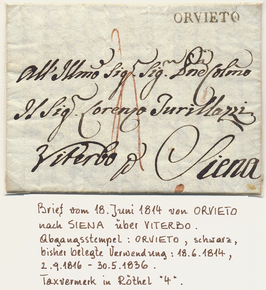 ORVIETO
All'Illmo Sig.r Sig.r
Il Sig.r Lorenzo
Viterbo p Siena
Brief vom 18. Juni 1814 von ORVIETO
nach SIENA über VITERBO.
Abgangsstempel: ORVIETO, schwarz,
bisher belegte Verwendung: 18.6.1814,
2.9.1816 - 30.5.1836.
Taxvermerk in Röthel "4".